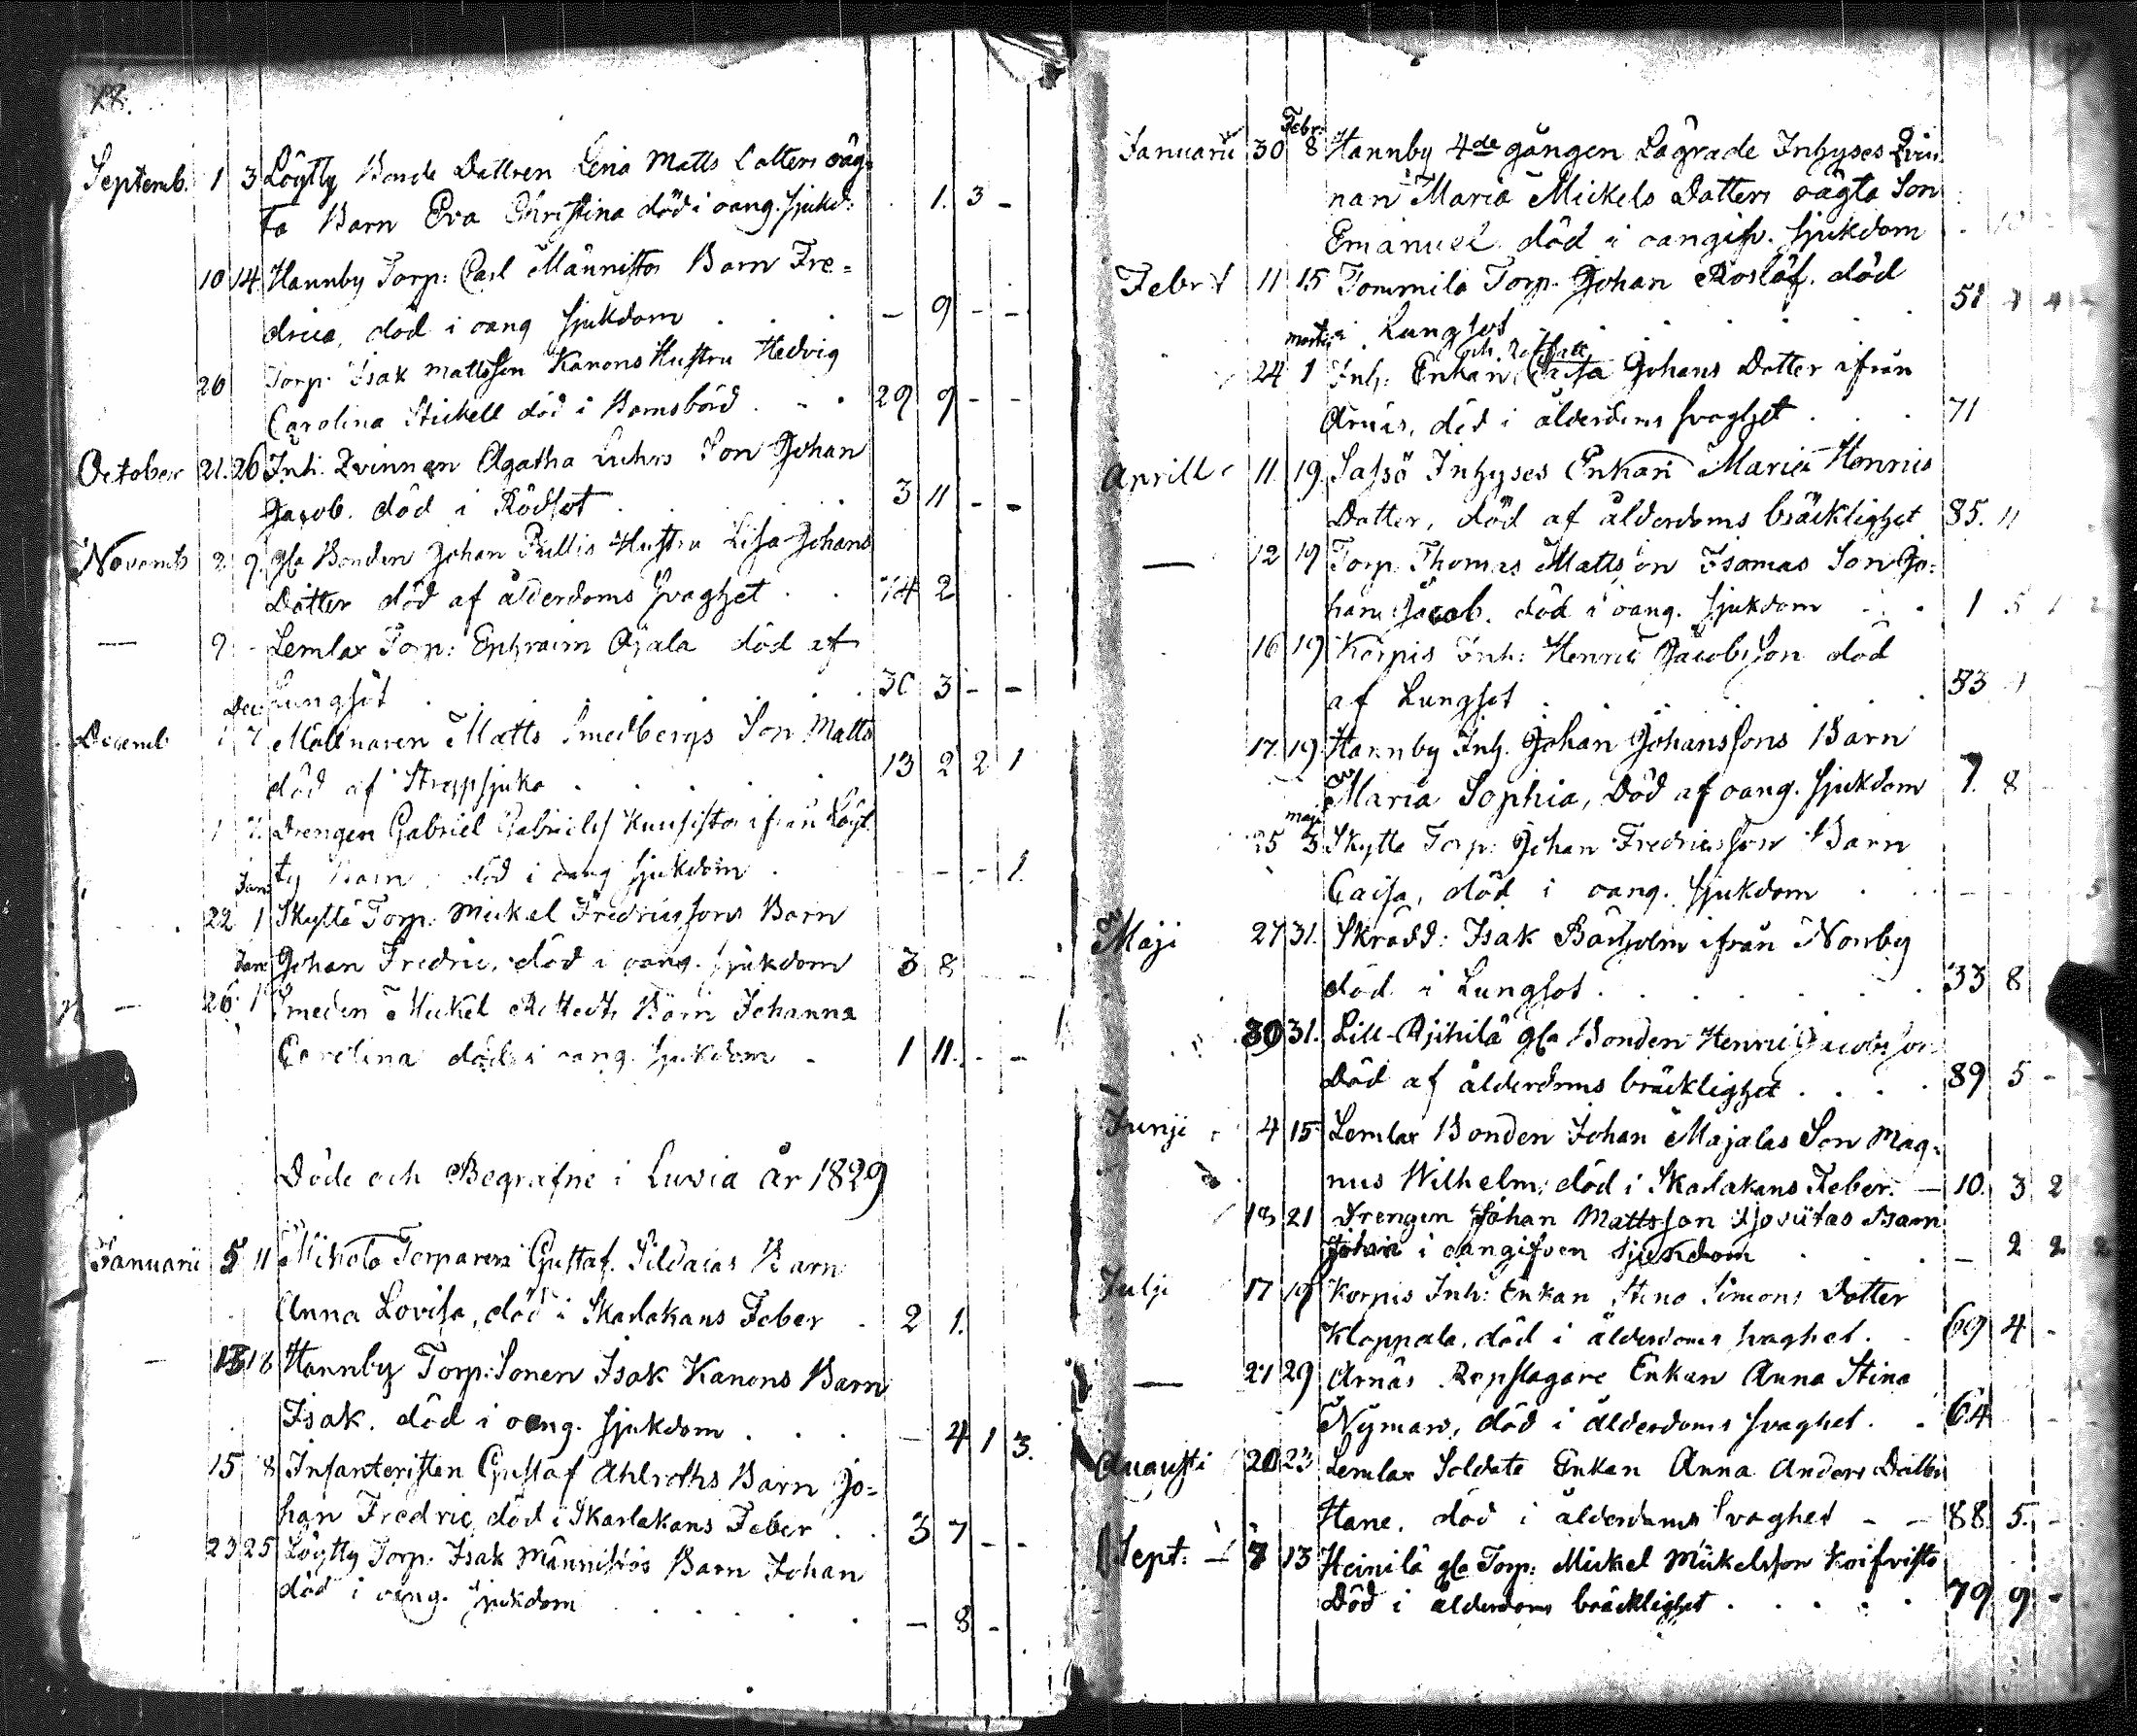 Septemb. 1 3 Löytty Bonde Dattren Lena Matts Datters oäg=
ta Barn Eva Christina död i oang. sjukd: 1. 3 -
10 14 Hannby Torp: Carl Männistos Barn Fre=
drica, död i oang sjukdom . . - 9 - -
26 Torp. Isak Mattsson Kanons Hustru Hedvig
Carolina Stickell död i Barnsbörd . . . 29 9 - -
October 21. 26 Inh. Qvinnan Agatha Luhrs Son Johan
Jacob. död i Rödsot . . . 3 11 - -
Novemb 2 9. gla Bonden Johan Pullis Hustru Lisa Johans
Datter död af ålderdoms svaghet . . 74 2
— 9 - Lemlax Torp: Ephraim Ojala död af
Lungsot . . . . 30 3 - -
Decemb 1 7 Möllnaren Matts Smedbergs Son Matts
död af Strypsjuka . . . . 13 2 2 1
1 7. Drengen Gabriel Gabriels Kuusisto ifrån Löyt
ty Barn död i oang sjukdom . - - - 1
Jan
22 1 Skyttä Torp: Mickel Fredricssons Barn
Johan Fredric, död i oang. sjukdom 3 8 - -
Jan
— 26 1 Smeden Mickel Barn Johanna
Carolina död i oang. sjukdom - 1 11. - -
Döde och Begrafne i Luvia År 1829
Januarii 5 11 Mikola Torparen Gustaf Barn
Anna Lovisa, död i Skarlakans Feber . 2 1.
— 13 18 Hannby Torp: Sonen Isak Kanons Barn
Isak. död i oang. sjukdom . . . - 4 1 3.
15 18 Infanteristen Gustaf Ahlroths Barn Jo=
han Fredric, död i Skarlakans Feber . . 3 7 - -
23 25 Löytty Torp: Isak Männistös Barn Johan
död i oang. sjukdom . . . . - 8 -
Febr:
Januarii 30 8 Hannby 4de gången Lägrade Inhyses Qvin
nan Maria Mickels Datters oägta Son
Emanuel död i oangifv. sjukdom
Febr 11 15 Tommila Torp. Johan Roslöf. död
i Lungsot . . . . 51
Martii
24 1 Inh: Enkan Caisa Johans Datter ifrån
Arnäs, död i ålderdoms svaghet . . . 71
Aprill 11 19. Lassö Inhyses Enkan Maria Henrics
Datter, död af ålderdoms bräcklighet 85. 11
— 12 19 Torp. Thomas Mattsson Isomas Son Jo=
han Jacob. död i oang. sjukdom . . 1 5
16 19 Korpis Inh: Henric Jacobsson död
af Lungsot . . . . 53
17. 19. Hannby Inh. Johan Johanssons Barn
Maria Sophia, död af oang. sjukdom 7. 8
maji
25 3 Skyttä Torp: Johan Fredricsson Barn
Caisa, död i oang. sjukdom . .
Maji 27 31. Skrädd: Isak Båtholm ifrån Norrby
död i Lungsot . . . . 33 8
30 31. Lill-Pjikilä gla Bonden Henric Jacobsson
Död af ålderdoms bräcklighet . . . . 89 5 - -
Junji 4 15 Lemlax Bonden Johan Majalas Son Mag=
nus Wilhelm, död i Skarlakans Feber. - 10. 3 2
18 21 Drengen Johan Mattsson Barn
Johan i oangifven sjukdom . . - 2 2 2
Julji 17 19 Korpis Inh: Enkan Stina Simons Datter
Kloppala, död i ålderdoms svaghet. . 69 4 -
— 27 29 Arnäs Repslagare Enkan Anna Stina
Nyman, död i ålderdoms svaghet . . 64
Augusti 20 23 Lemlax Soldate Enkan Anna Anders Datter
Hane. död i ålderdoms svaghet - - 88. 5. -
Sept: 7 13 Heinilä gla Torp: Mickel Mickelsson Koifvisto
Död i ålderdoms bräcklighet . . . . 79 9 -